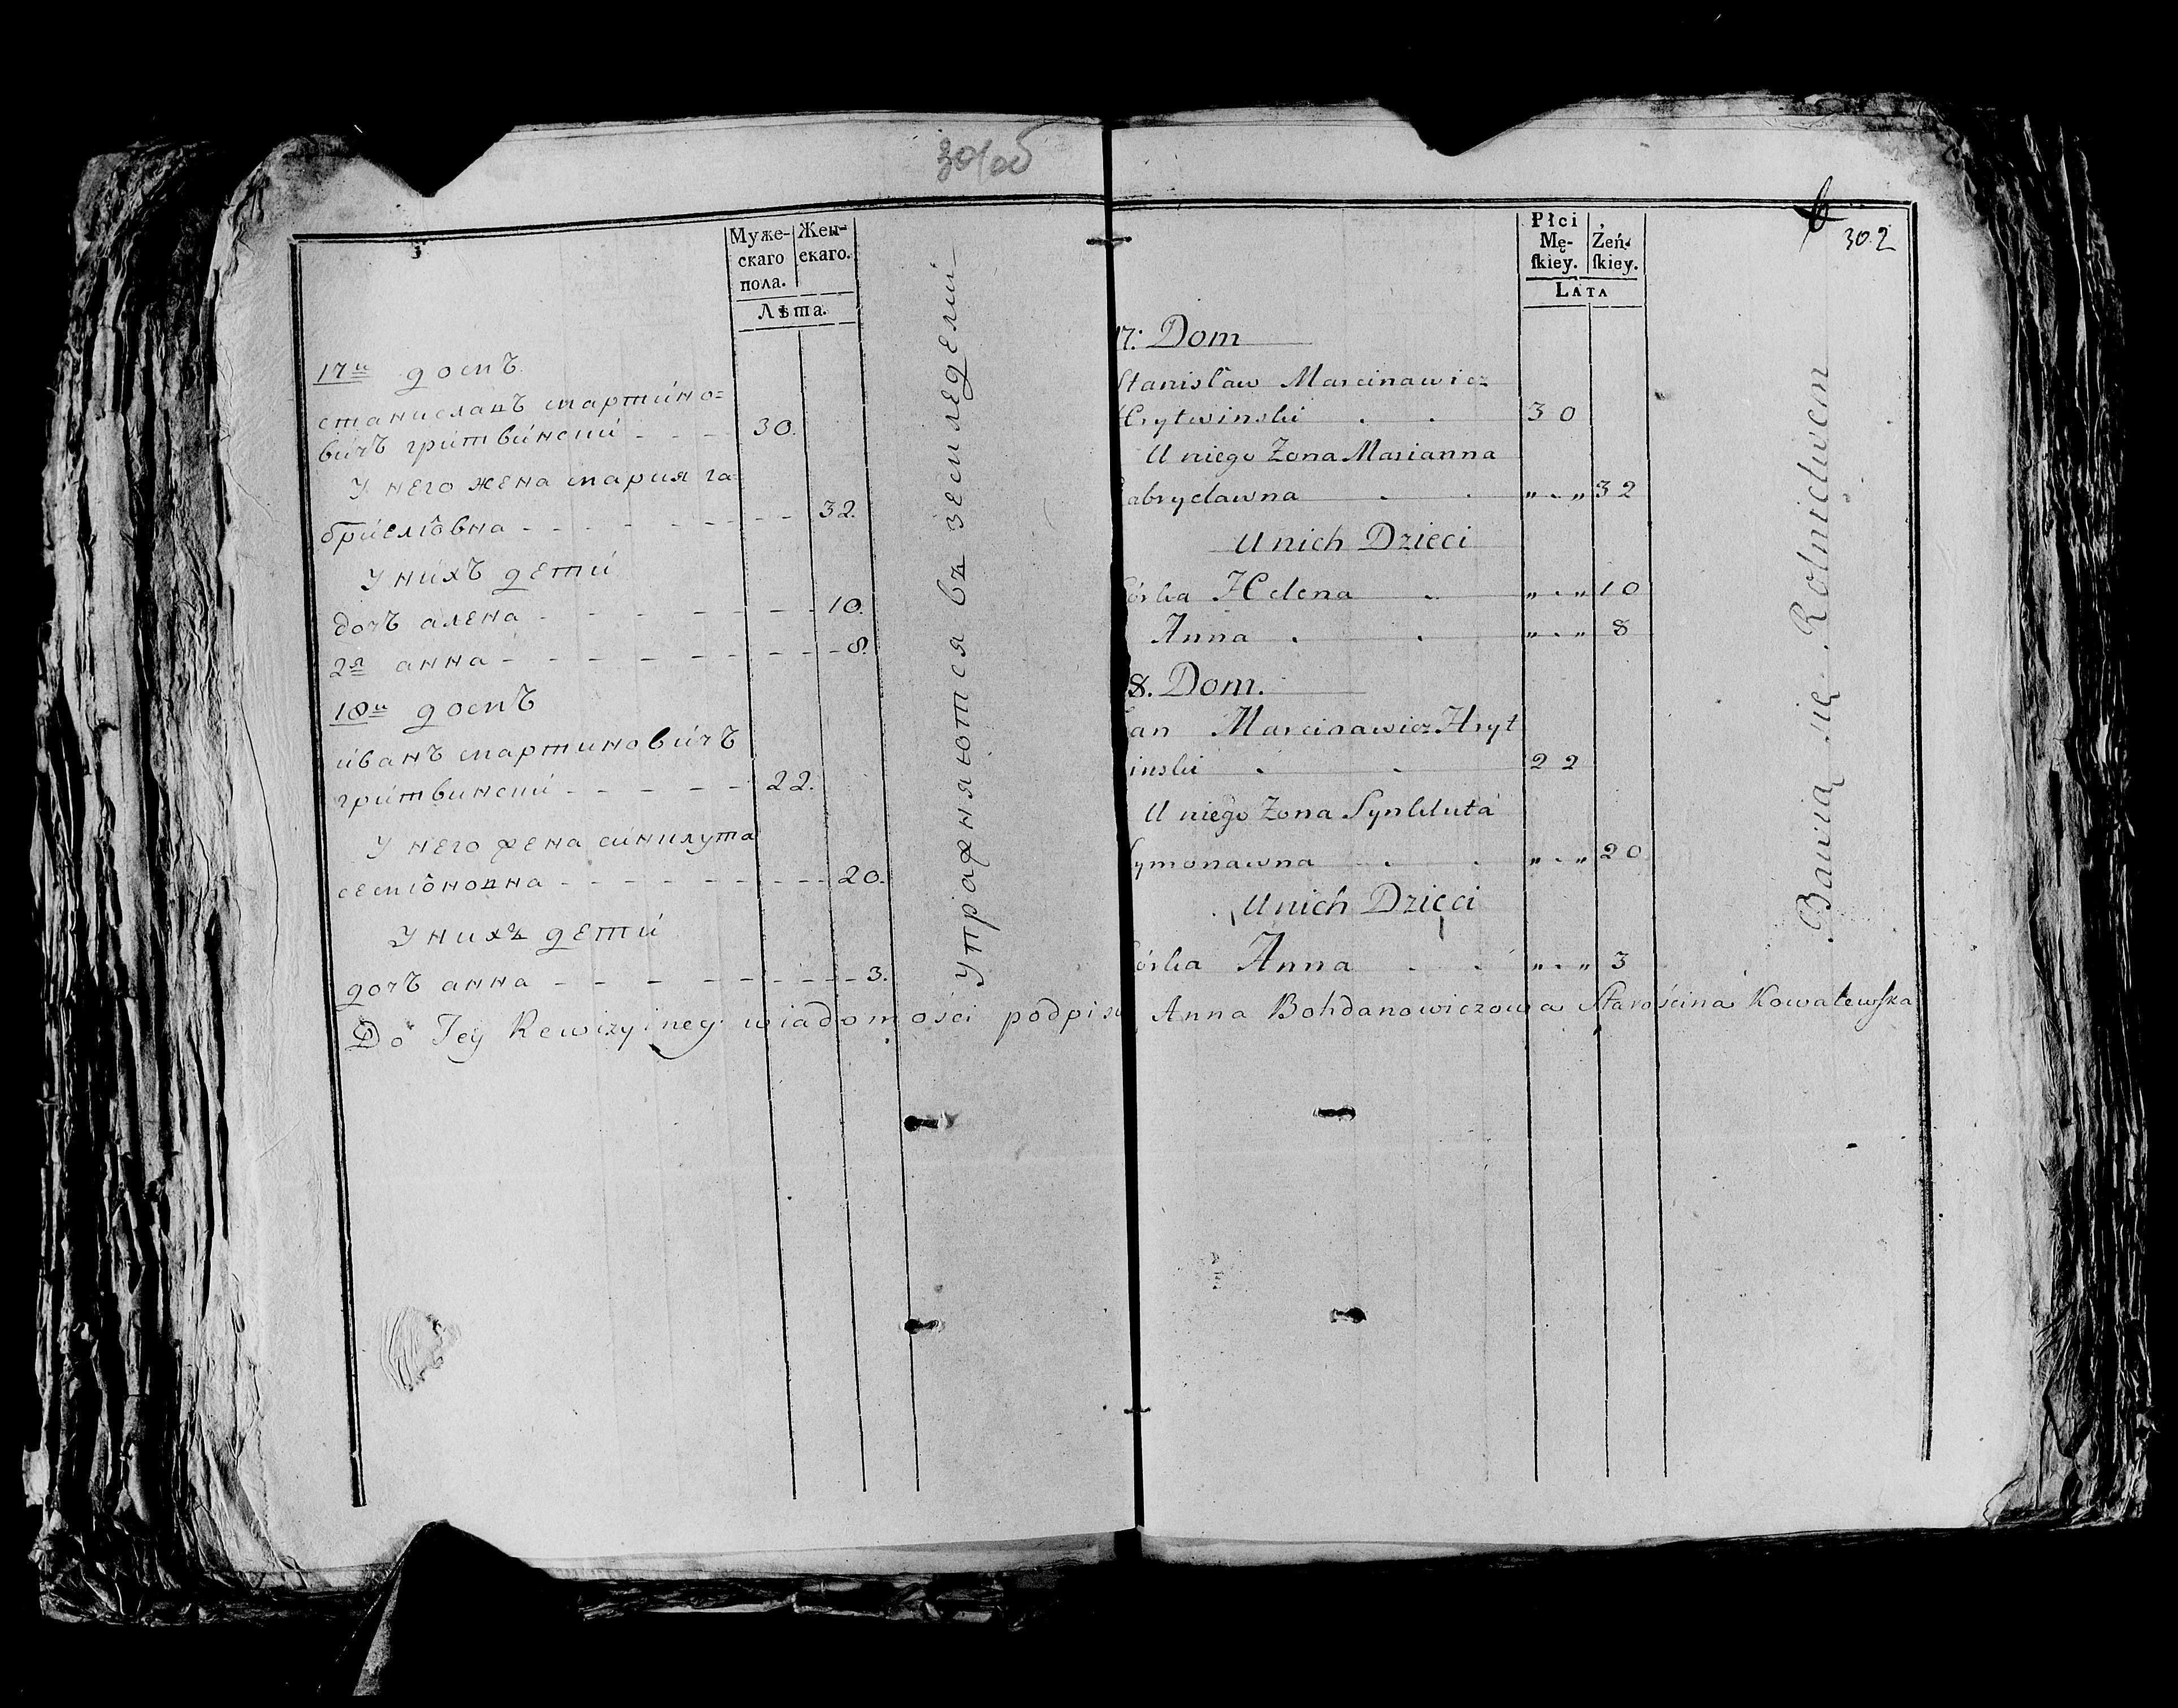 301об
Муже-
скаго
пола.
Жен-
скаго.
Лѣта.
17й домъ
станиславъ мартино=
вичъ гритвинский - - - 30.
У него жена мария га
бриелiовна - - - - - - - - 32.
У нихъ дети
дочъ алена - - - - - - - 10.
2я анна - - - - - - - - - 8.
18й домъ
иванъ мартиновичъ
гритвинский - - - - - 22.
У него жена синклута
семiоновна - - - - - - - - 20.
У нихъ дети
дочъ анна - - - - - - - - 3.
Упражняются въ земледелии
302
Płci
Mę-
ſkiey.
Żeń-
ſkiey.
LATA
17: Dom
Stanisław Marcinawicz
Hrytwinski . . 30
U niego Zona Marianna
abryelawna . . „ . „ 32
U nich Dzieci
órka Helena . „ . „ 10
Anna . . „ . „ 8
8. Dom.
an Marcinawicz Hryt
inski . . 22
U niego Zona Synkluta
ymonawna . . „ . „ 20
U nich Dzieci
órka Anna . . „ . „ 3
Bawią się Rolnictwem
Do Jey Rewizyiney wiadomości podpisu Anna Bohdanowiczowa Starościna Kowalewska